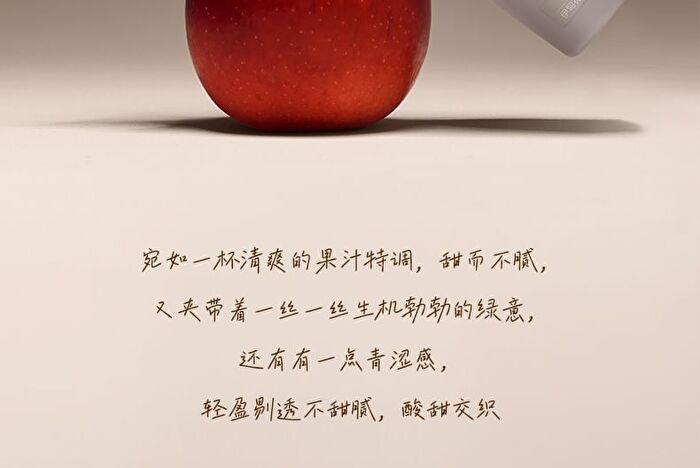 宛如一杯清爽的果汁特调，甜而不腻，
又夹带着一丝一丝生机勃勃的绿意，
还有有一点青涩感，
轻盈剔透不甜腻，酸甜交织